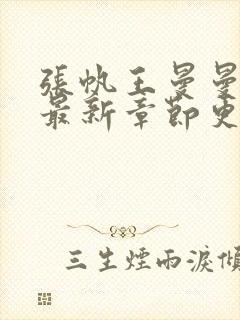 張帆王曼曼
最新章節更
三生煙雨淚傾